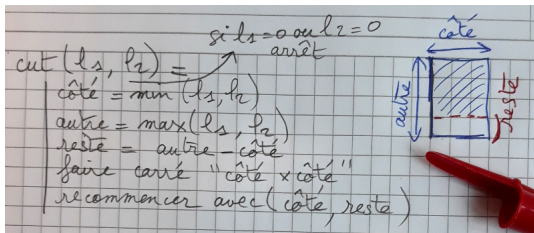 si l1=0 ou l2=0
arrêt
cut(l1, l2) =
côté = min (l1, l2)
autre = max(l1, l2)
reste = autre - côté
faire carré "côté x côté"
recommencer avec (côté, reste)
côté
autre
reste